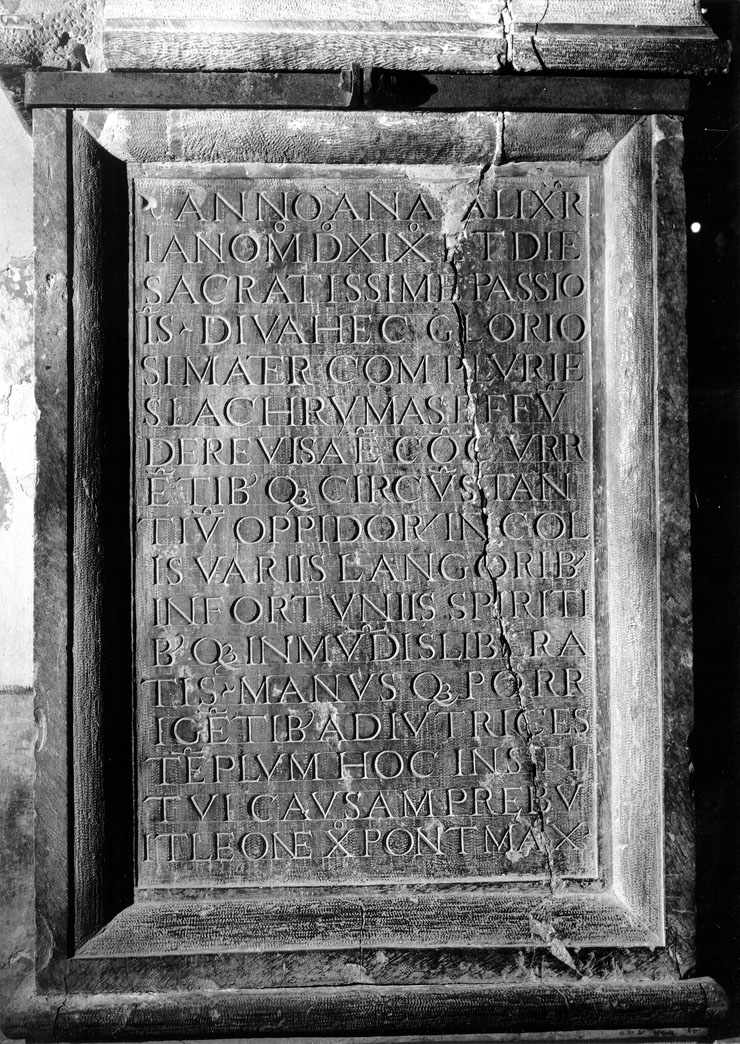 ANNO ANA ALIXR
IANO M D XIX ET DIE
SACRATISSIME PASSIO
IS DIVA HEC GLORIO
SI MATER COMPLVRIE
S LACHRVMAS EFFŪ
DERE VISA Ē COCVRR
ĒTIB' Q3 CIRCVSTAN
TIŪ OPPIDOR' INCOL
IS VARIIS LANGORIB'
INFORTVNIIS SPIRITI
B' Q3 INMVDIS LIBERA
TIS MANVS Q3 PORR
IGĒTIB' ADIVTRICES
TĒPLVM HOC INSTI
TVI CAVSAM PREBV
IT LEONE X PONT MAX